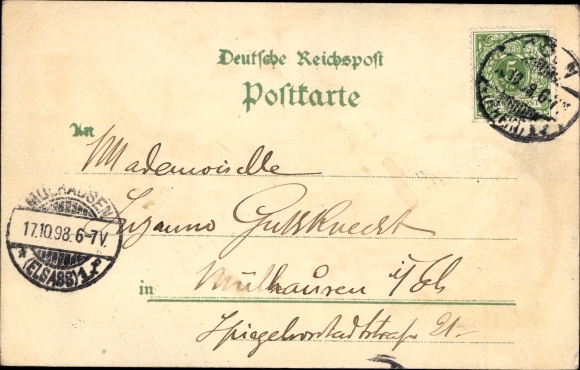 Deutsche Reichspost
Postkarte
An
Mademoiselle
Suzanne Gutsknecht
in Mülhausen i/Els
Spiegelvorstadtstraße 21
MÜLHAUSEN
17.10.98.6-7V.
* (ELSASS) 1 *
5